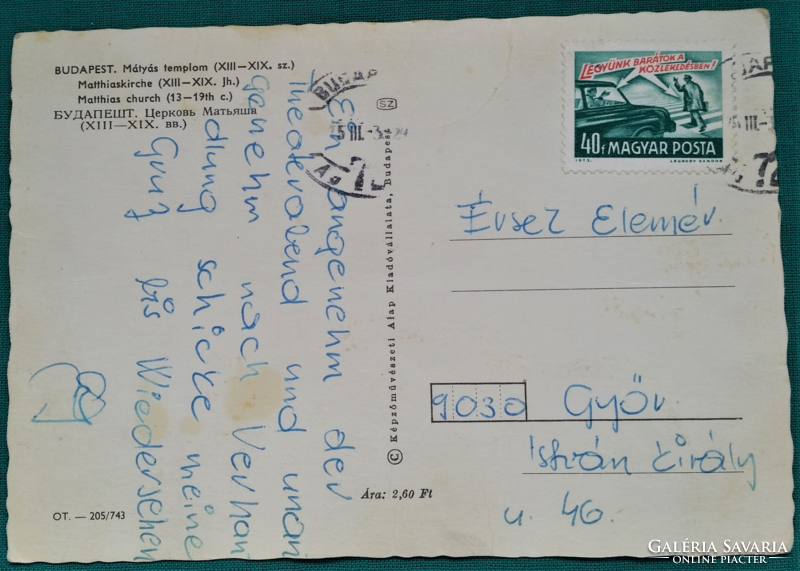 BUDAPEST. Mátyás templom (XIII—XIX. sz.)
Matthiaskirche (XIII—XIX. Jh.)
Matthias church (13—19th c.)
БУДАПЕШТ. Церковь Матьяша
(XIII—XIX. вв.)
Ein angenehm der
Theaterabend und unan
genehm nach Verhan
dlung schicke meine
bis Wiedersehen
OT. — 205/743
SZ
© Képzőművészeti Alap Kiadóvállalata, Budapest
Ára: 2,60 Ft
LEGYÜNK BARÁTOK A
KÖZLEKEDÉSBEN!
40f MAGYAR POSTA
1973.
LÉGRÁDY SÁNDOR
BUDAP
III.-3
72
72
Elemér
9030 Győr
István király
u. 46.
GALÉRIA SAVARIA
ONLINE PIACTÉR